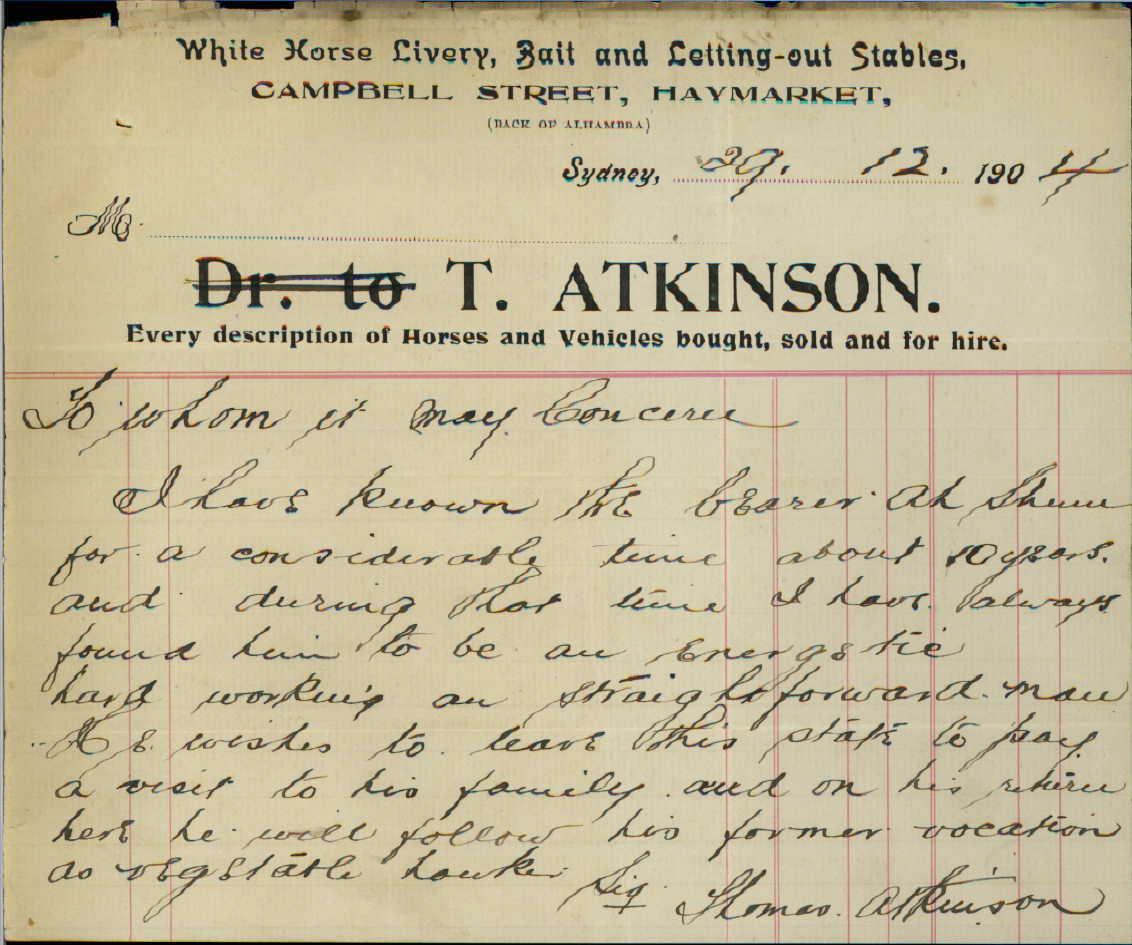 White Horse Livery, Bait and Letting-out Stables,
CAMPBELL STREET, HAYMARKET,
(BACK OF ALHAMBRA)
Sydney, 29. 12. 1904
M
Dr. to T. ATKINSON.
Every description of Horses and Vehicles bought, sold and for hire.
To whom it may Concern
I have known the bearer Ah Shum
for a considerable time about 10 years.
and during that time I have always
found him to be an energetic
hard working an straightforward man
He wishes to leave this state to pay
a visit to his family and on his return
here he will follow his former vocation
as vegetable hawker
Sig Thomas Atkinson